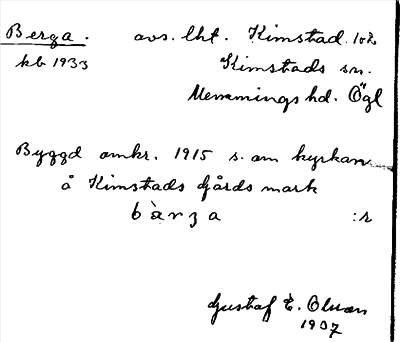 Berga. avs. lht. Kimstad. 1 o 2
kb 1933 Kimstads sn.
Memmings hd. Ögl
Byggd omkr. 1915 s. om kyrkan
å Kimstads Gårds mark
bàrʒa :r
Gustaf E. Olsson
1937